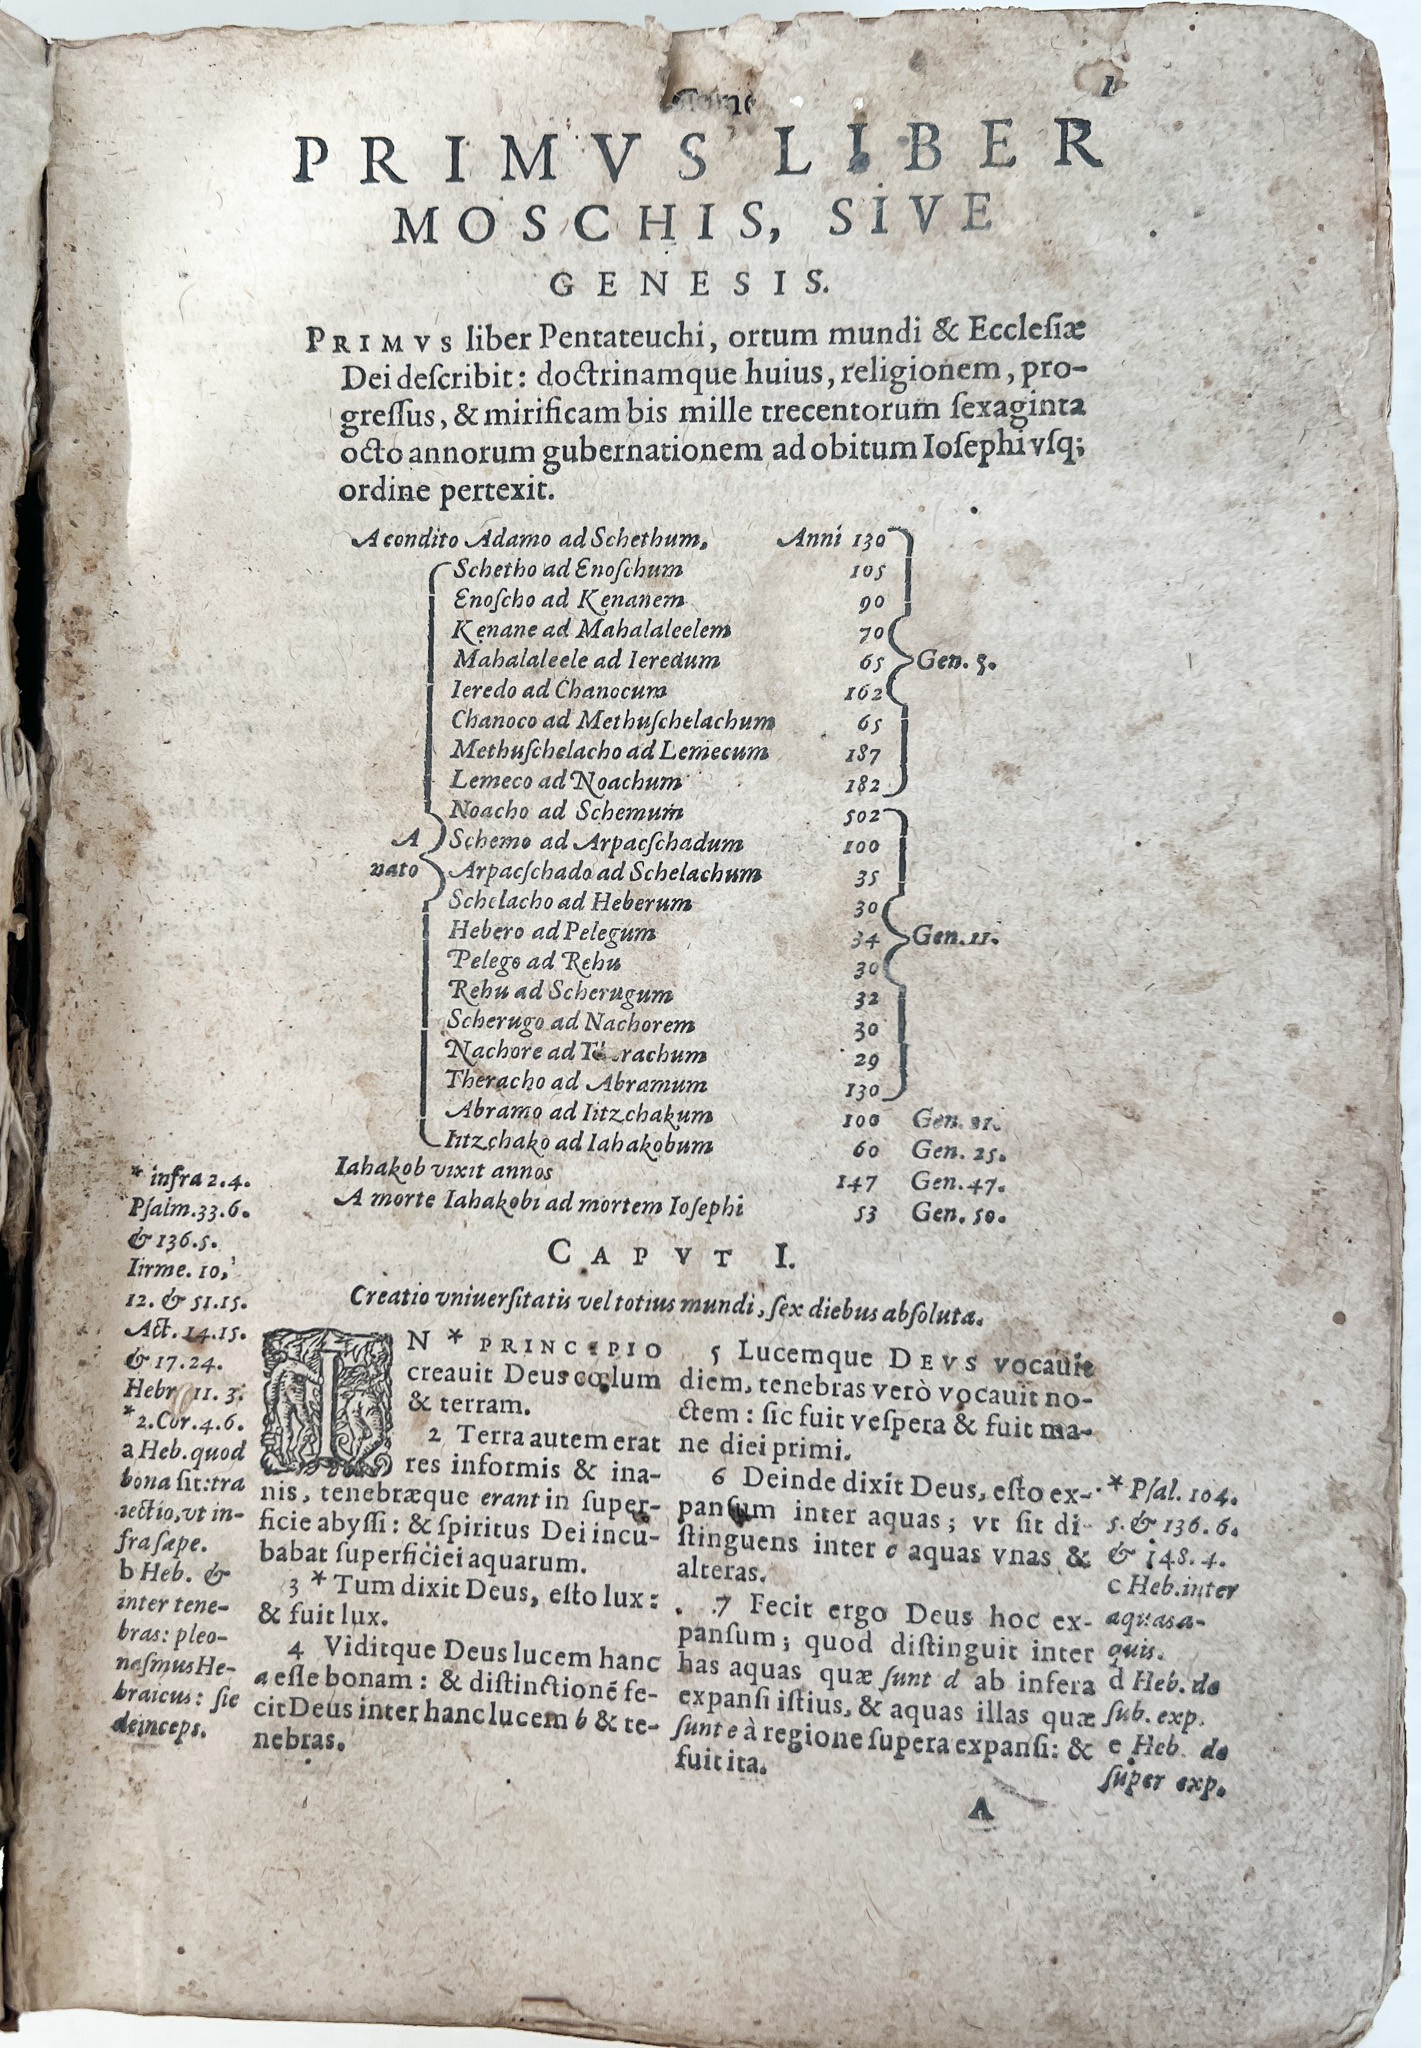 1
PRIMVS LIBER
MOSCHIS, SIVE
GENESIS.
PRIMVS liber Pentateuchi, ortum mundi & Ecclesiæ
Dei deſcribit: doctrinamque huius, religionem, pro-
greſſus, & mirificam bis mille trecentorum ſexaginta
octo annorum gubernationem ad obitum Ioſephi vſq;
ordine pertexit.
A condito Adamo ad Schethum. Anni 130
Schetho ad Enoſchum 105
Enoſcho ad Kenanem 90
Kenane ad Mahalaleelem 70
Mahalaleele ad Ieredum 65 Gen. 5.
Ieredo ad Chanocum 162
Chanoco ad Methuſchelachum 65
Methuſchelacho ad Lemecum 187
Lemeco ad Noachum 182
Noacho ad Schemum 502
A Schemo ad Arpacſchadum 100
nato Arpacſchado ad Schelachum 35
Schelacho ad Heberum 30
Hebero ad Pelegum 34 Gen. 11.
Pelego ad Rehu 30
Rehu ad Scherugum 32
Scherugo ad Nachorem 30
Nachore ad Therachum 29
Theracho ad Abramum 130
Abramo ad Iitzchakum 100 Gen. 21.
Iitzchako ad Iahakobum 60 Gen. 25.
Iahakob vixit annos 147 Gen. 47.
A morte Iahakobi ad mortem Ioſephi 53 Gen. 50.
* infra 2.4.
Pſalm. 33.6.
& 136.5.
Iirme. 10,
12. & 51.15.
Act. 14.15.
& 17.24.
Hebr 11. 3.
* 2. Cor. 4.6.
a Heb. quod
bona ſit: tra
iectio, vt in-
fra ſæpe.
b Heb. &
inter tene-
bras: pleo-
naſmus He-
braicus: ſic
deinceps.
CAPVT I.
Creatio vniuerſitatis vel totius mundi, ſex diebus abſoluta.
IN * PRINCIPIO
creauit Deus cœlum
& terram.
2 Terra autem erat
res informis & ina-
nis, tenebræque erant in ſuper-
ficie abyſſi: & ſpiritus Dei incu-
babat ſuperficiei aquarum.
3 * Tum dixit Deus, eſto lux:
& fuit lux.
4 Viditque Deus lucem hanc
a eſſe bonam: & diſtinctioné fe-
cit Deus inter hanc lucem b & te-
nebras.
5 Lucemque DEVS vocauit
diem, tenebras verò vocauit no-
ctem: ſic fuit veſpera & fuit ma-
ne diei primi.
6 Deinde dixit Deus, eſto ex-
panſum inter aquas; vt ſit di-
ſtinguens inter c aquas vnas &
alteras.
7 Fecit ergo Deus hoc ex-
panſum; quod diſtinguit inter
has aquas quæ ſunt d ab infera
expanſi iſtius, & aquas illas quæ
ſunt e à regione ſupera expanſi: &
fuit ita.
* Pſal. 104.
5. & 136. 6.
& 148. 4.
c Heb. inter
aquas a-
quis.
d Heb. de
ſub. exp.
e Heb. de
ſuper exp.
A